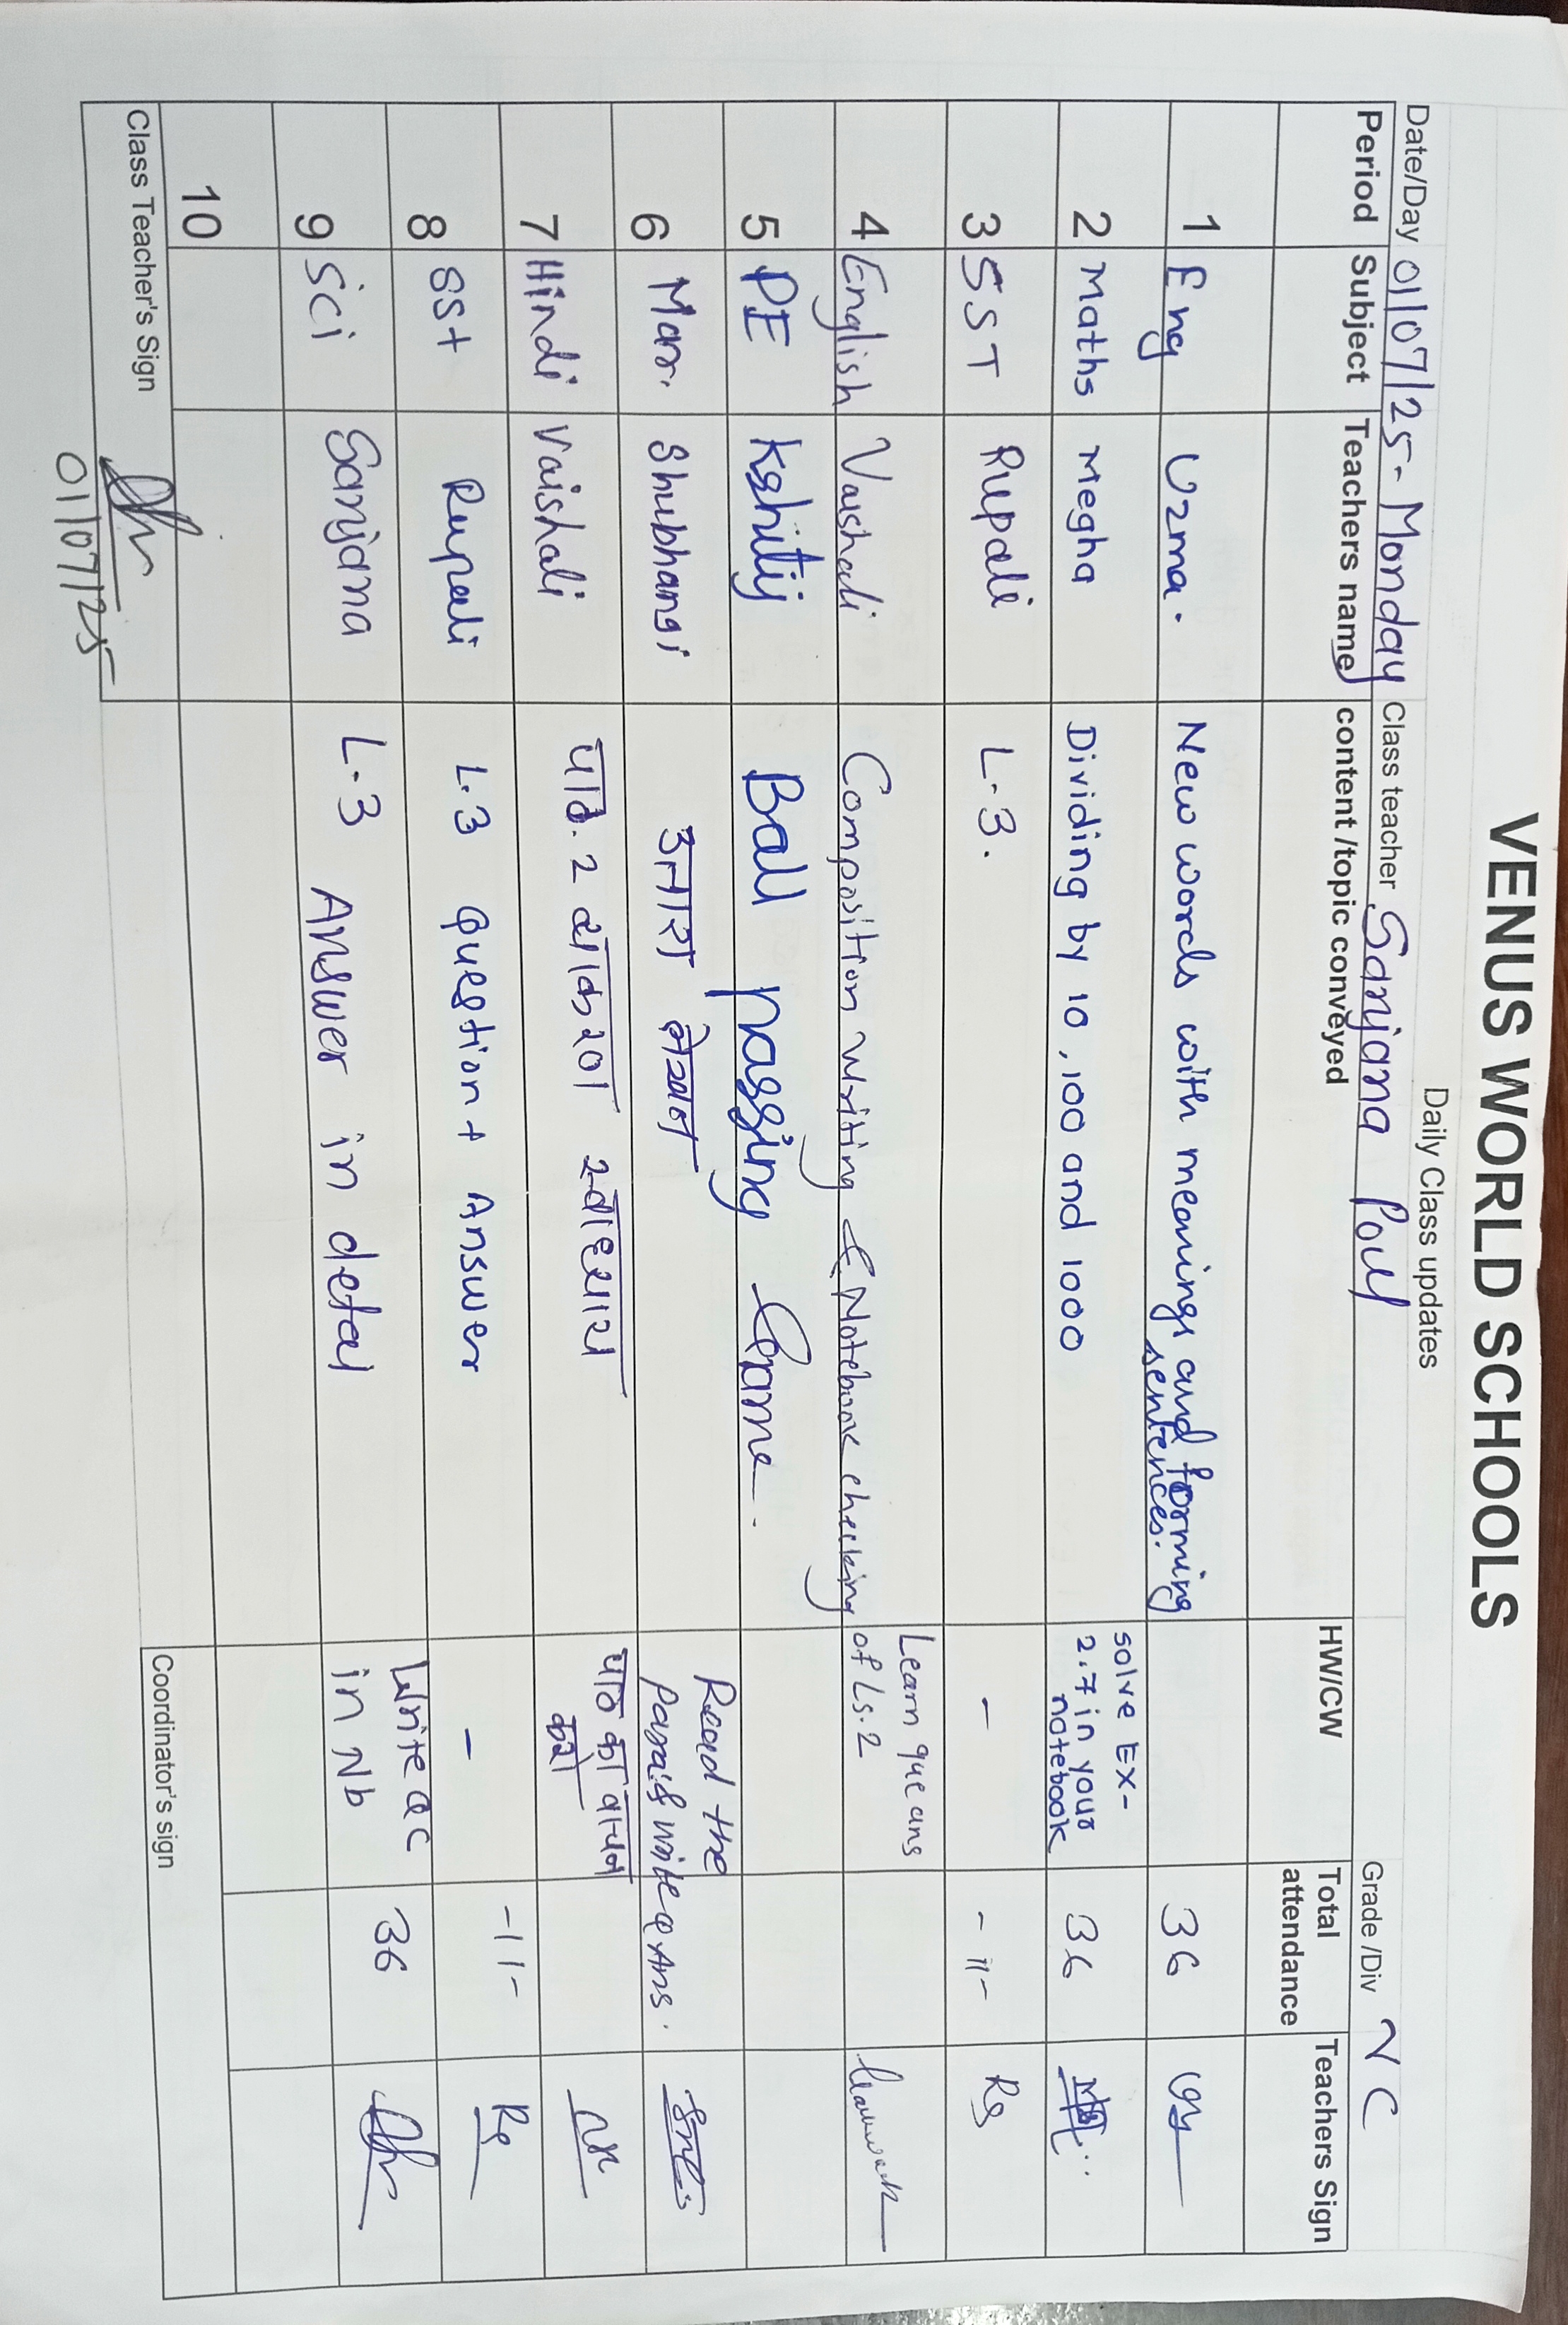 VENUS WORLD SCHOOLS
Daily Class updates
Date/Day 01/07/25- Monday Class teacher Sanjana Poul Grade /Div V C
Period Subject Teachers name content /topic conveyed HW/CW Total attendance Teachers Sign
1 Eng Uzma. New words with meanings and forming sentences. 36
2 Maths Megha Dividing by 10, 100 and 1000 solve EX- 2.7 in your notebook 36
3 SST Rupali L.3. - -11- Rs
4 English Vaishali Composition writing & Notebook checking Learn que ans of Ls.2
5 PE Kshitij Ball passing Game
6 Mar. Shubhangi उतारा लेखन Read the para & write Q Ans.
7 Hindi Vaishali पाठ. 2 व्याकरण स्वाध्याय पाठ का वाचन करो
8 SSt Rupali L.3 Question + Answer - -11- Rs
9 Sci Sanjana L.3 Answer in detal Write QC in Nb 36
10
Class Teacher's Sign 01/07/25 Coordinator's sign